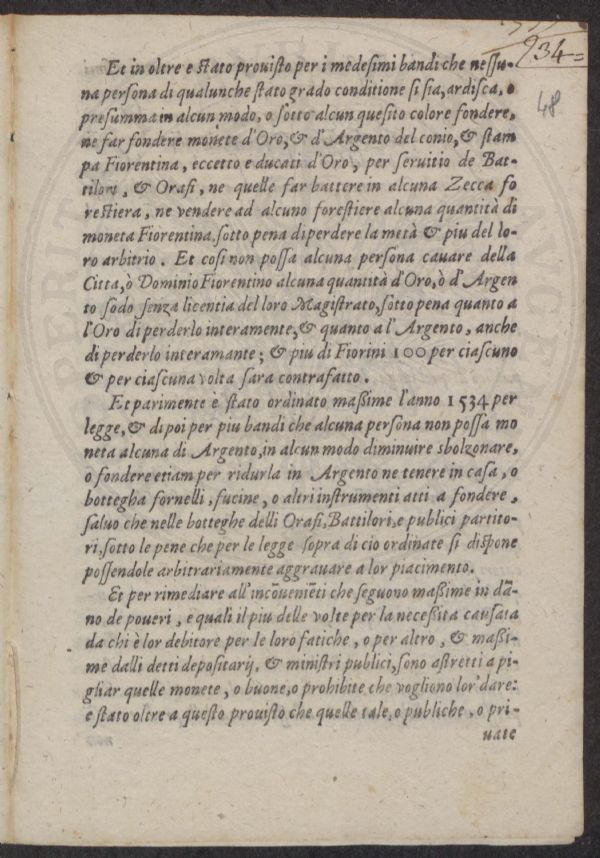 934=
48
Et in oltre e stato prouisto per i medesimi bandi che nessu-
na persona di qualunche stato grado conditione si sia, ardisca, o
presumma in alcun modo, o sotto alcun quesito colore fondere,
ne far fondere monete d'Oro, & d'Argento del conio, & stam
pa Fiorentina, eccetto e ducati d'Oro, per seruitio de Bat-
tilori, & Orafi, ne quelle far battere in alcuna Zecca fo
restiera, ne vendere ad alcuno forestiere alcuna quantità di
moneta Fiorentina, sotto pena di perdere la metà & piu del lo-
ro arbitrio. Et cosi non possa alcuna persona cauare della
Citta, ò Dominio Fiorentino alcuna quantità d'Oro, ò d'Argen
to sodo senza licentia del loro Magistrato, sotto pena quanto a
l'Oro di perderlo interamente, & quanto a l'Argento, anche
di perderlo interamante; & piu di Fiorini 100 per ciascuno
& per ciascuna volta sara contrafatto.
Et parimente è stato ordinato maßime l'anno 1534 per
legge, & di poi per piu bandi che alcuna persona non possa mo
neta alcuna di Argento, in alcun modo diminuire sbolzonare,
o fondere etiam per ridurla in Argento ne tenere in casa, o
bottegha fornelli, fucine, o altri instrumenti atti a fondere,
saluo che nelle botteghe delli Orafi, Battilori, e publici partito-
ri, sotto le pene che per le legge sopra di cio ordinate si dispone
possendole arbitrariamente aggrauare a lor piacimento.
Et per rimediare all'incōueniēti che seguono maßime in dā-
no de poueri, e quali il piu delle volte per la necessita causata
da chi è lor debitore per le loro fatiche, o per altro, & maßi-
me dalli detti depositarij, & ministri publici, sono astretti a pi-
gliar quelle monete, o buone, o prohibite che vogliono lor dare:
e stato oltre a questo prouisto che quelle tale, o publiche, o pri-
uate